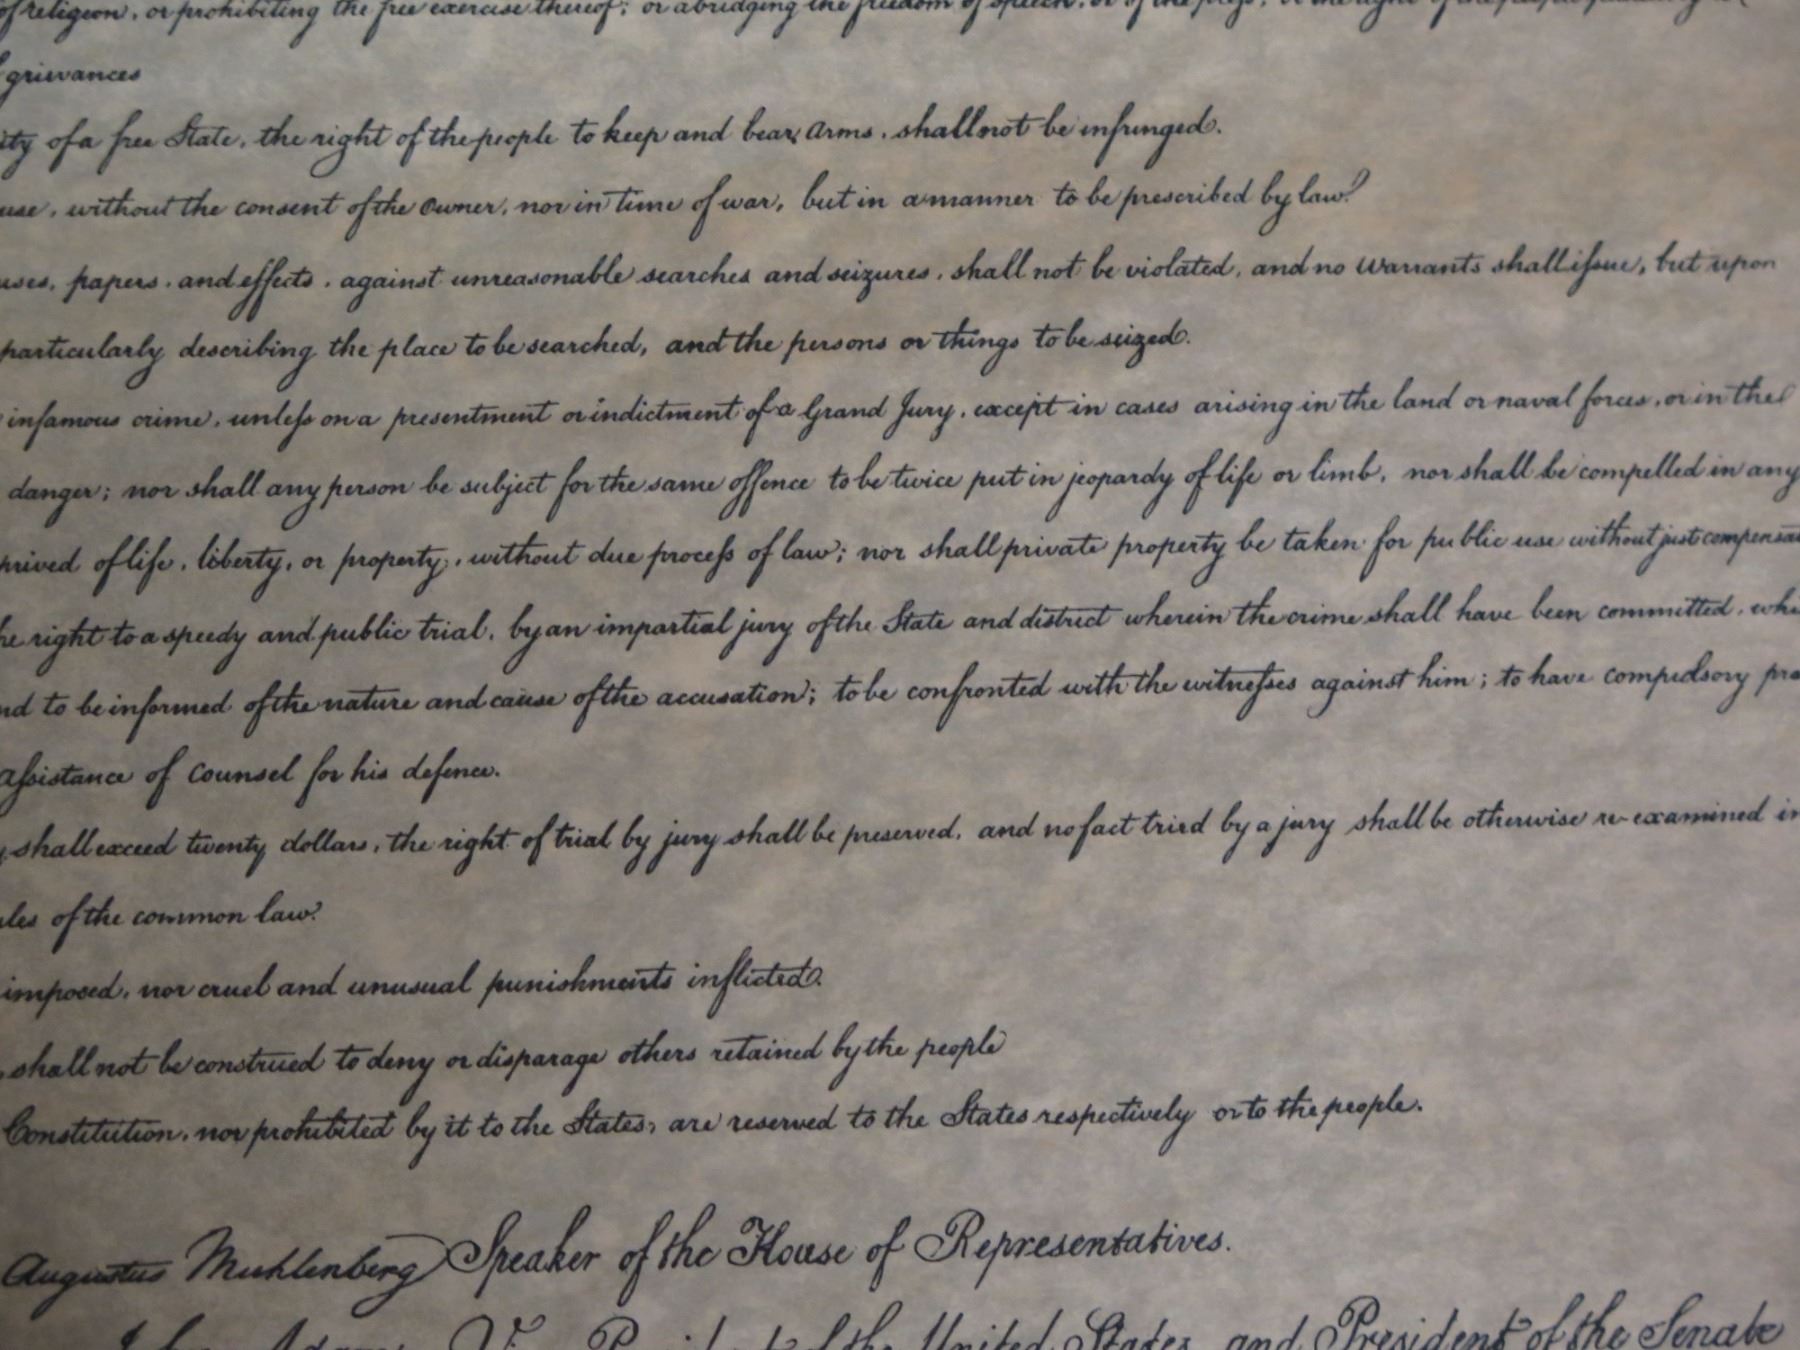 of religion, or prohibiting the free exercise thereof; or abridging the freedom of speech, or of the press; or the right of the people
grievances
ty of a free State, the right of the people to keep and bear Arms, shall not be infringed.
use, without the consent of the Owner, nor in time of war, but in a manner to be prescribed by law.
uses, papers, and effects, against unreasonable searches and seizures, shall not be violated, and no Warrants shall issue, but upon
particularly describing the place to be searched, and the persons or things to be seized.
infamous crime, unless on a presentment or indictment of a Grand Jury, except in cases arising in the land or naval forces, or in the
danger; nor shall any person be subject for the same offence to be twice put in jeopardy of life or limb, nor shall be compelled in any
prived of life, liberty, or property, without due process of law; nor shall private property be taken for public use without just compensa
he right to a speedy and public trial, by an impartial jury of the State and district wherein the crime shall have been committed, whi
nd to be informed of the nature and cause of the accusation; to be confronted with the witnesses against him; to have compulsory pro
assistance of Counsel for his defence.
y shall exceed twenty dollars, the right of trial by jury shall be preserved, and no fact tried by a jury shall be otherwise re-examined in
ules of the common law.
imposed, nor cruel and unusual punishments inflicted.
, shall not be construed to deny or disparage others retained by the people
Constitution, nor prohibited by it to the States, are reserved to the States respectively or to the people.
Augustus Muhlenberg Speaker of the House of Representatives.
John Adams, Vice President of the United States, and President of the Senate